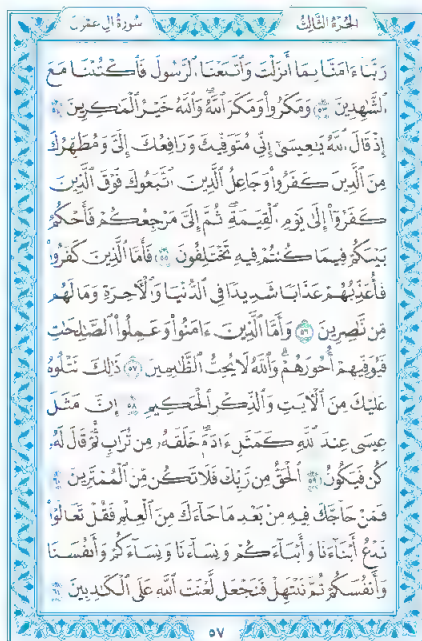 الجزء الثالث
سورة آل عمران
رَبَّنَا ءَامَنَّا بِمَا أَنزَلْتَ وَاتَّبَعْنَا الرَّسُولَ فَاكْتُبْنَا مَعَ
الشَّٰهِدِينَ ٥٣ وَمَكَرُوا۟ وَمَكَرَ اللَّهُ وَاللَّهُ خَيْرُ الْمَٰكِرِينَ ٥٤
إِذْ قَالَ اللَّهُ يَٰعِيسَىٰٓ إِنِّى مُتَوَفِّيكَ وَرَافِعُكَ إِلَىَّ وَمُطَهِّرُكَ
مِنَ الَّذِينَ كَفَرُوا۟ وَجَاعِلُ الَّذِينَ اتَّبَعُوكَ فَوْقَ الَّذِينَ
كَفَرُوٓا۟ إِلَىٰ يَوْمِ الْقِيَٰمَةِ ثُمَّ إِلَىَّ مَرْجِعُكُمْ فَأَحْكُمُ
بَيْنَكُمْ فِيمَا كُنتُمْ فِيهِ تَخْتَلِفُونَ ٥٥ فَأَمَّا الَّذِينَ كَفَرُوا۟
فَأُعَذِّبُهُمْ عَذَابًا شَدِيدًا فِى الدُّنْيَا وَالْءَاخِرَةِ وَمَا لَهُم
مِّن نَّٰصِرِينَ ٥٦ وَأَمَّا الَّذِينَ ءَامَنُوا۟ وَعَمِلُوا۟ الصَّٰلِحَٰتِ
فَيُوَفِّيهِمْ أُجُورَهُمْ وَاللَّهُ لَا يُحِبُّ الظَّٰلِمِينَ ٥٧ ذَٰلِكَ نَتْلُوهُ
عَلَيْكَ مِنَ الْءَايَٰتِ وَالذِّكْرِ الْحَكِيمِ ٥٨ إِنَّ مَثَلَ
عِيسَىٰ عِندَ اللَّهِ كَمَثَلِ ءَادَمَ خَلَقَهُۥ مِن تُرَابٍ ثُمَّ قَالَ لَهُۥ
كُن فَيَكُونُ ٥٩ الْحَقُّ مِن رَّبِّكَ فَلَا تَكُن مِّنَ الْمُمْتَرِينَ ٦٠
فَمَنْ حَآجَّكَ فِيهِ مِنۢ بَعْدِ مَا جَآءَكَ مِنَ الْعِلْمِ فَقُلْ تَعَالَوْا۟
نَدْعُ أَبْنَآءَنَا وَأَبْنَآءَكُمْ وَنِسَآءَنَا وَنِسَآءَكُمْ وَأَنفُسَنَا
وَأَنفُسَكُمْ ثُمَّ نَبْتَهِلْ فَنَجْعَل لَّعْنَتَ اللَّهِ عَلَى الْكَٰذِبِينَ ٦١
٥٧